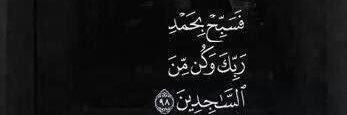 فَسَبِّحۡ بِحَمۡدِ
رَبِّكَ وَكُن مِّنَ
ٱلسَّٰجِدِينَ ۝٩٨